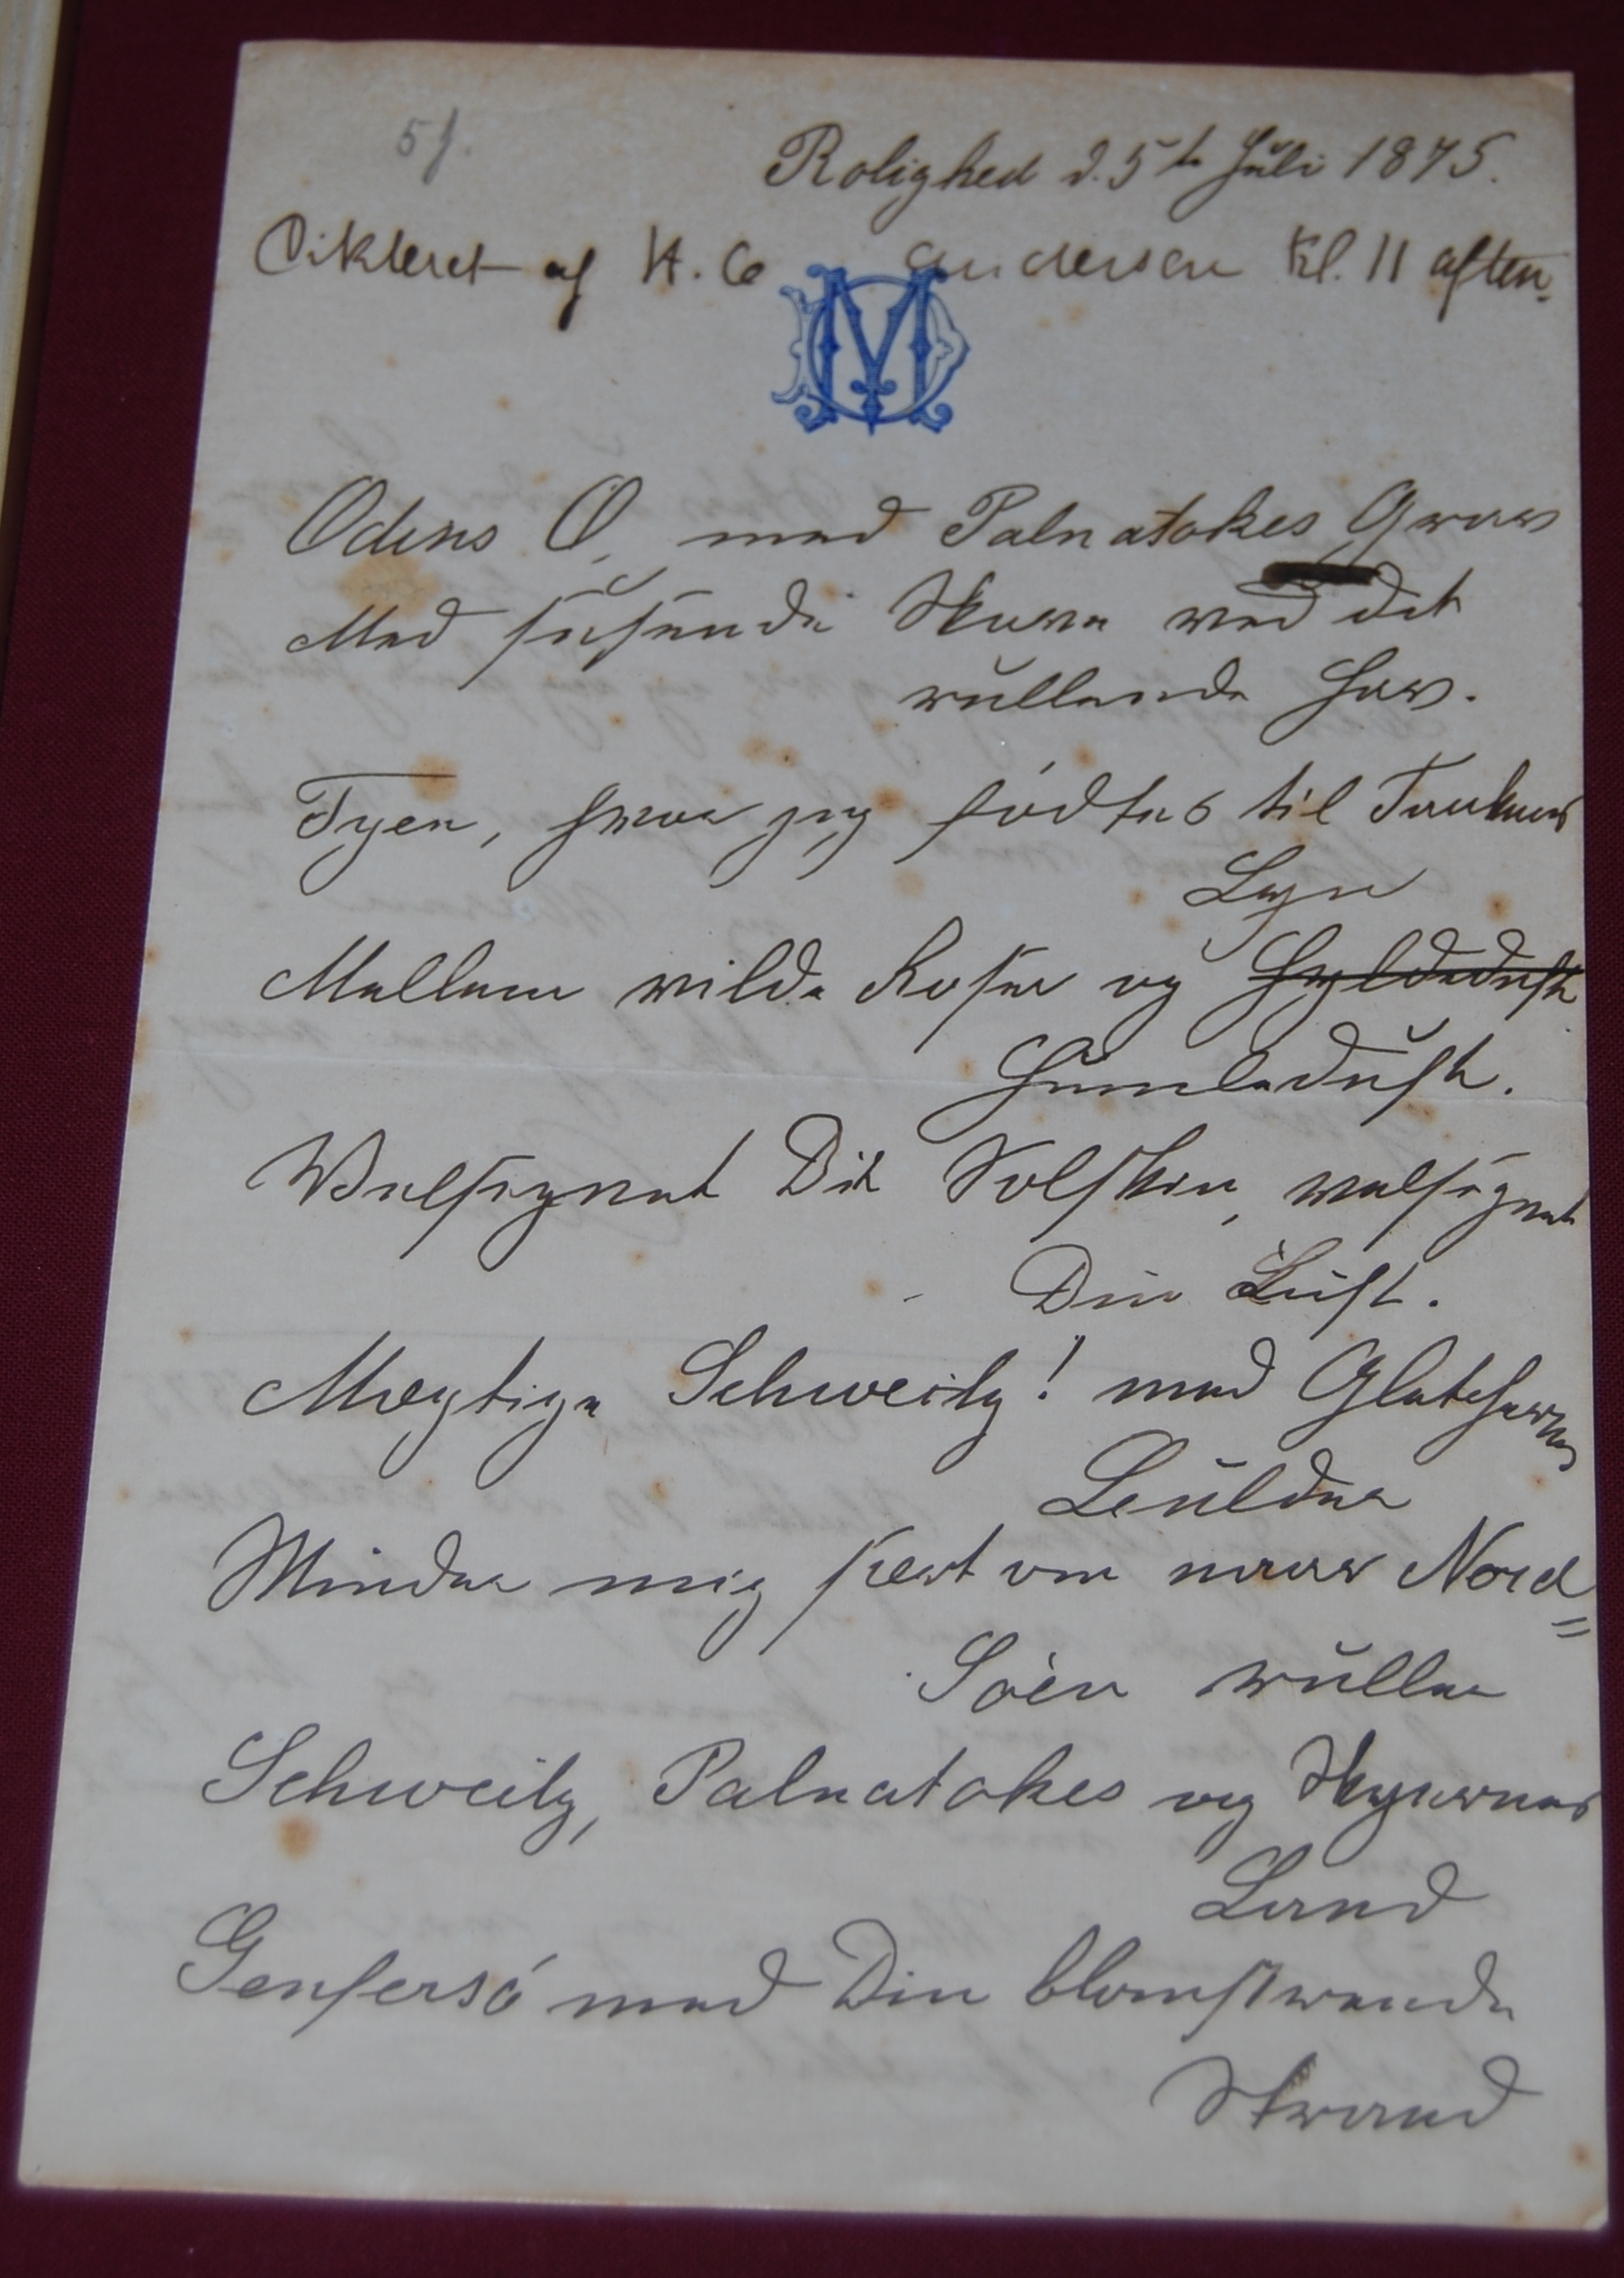 51.
Rolighed d. 5te Juli 1875.
Dikteret af H. C Andersen Kl. 11 aften.
MO
Odens Ø, med Palnatokes Grav
Med susende Skove ved det
rullende Hav.
Fyen, hvor jeg fødtes til Tankens
Lyn
Mellem vilde Roser og Hyldeduft
Humleduft.
Velsignet Dit Solskin, velsignet
Din Luft.
Mægtige Schweitz! med Gletschernes
Bulder
Minder mig sært om naar Nord=
Søen ruller
Schweitz, Palnatokes og Skyernes
Land
Genfersø med Din blomstrende
Strand